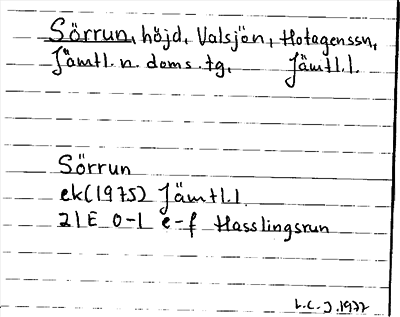 Sörrun, höjd, Valsjön, Hotagenssn,
Jämtl. n. doms. tg, Jämtl.l.
Sörrun
ek(1975) Jämtl.l
21E 0-1 e-f Hasslingsrun
L.C.J.1977